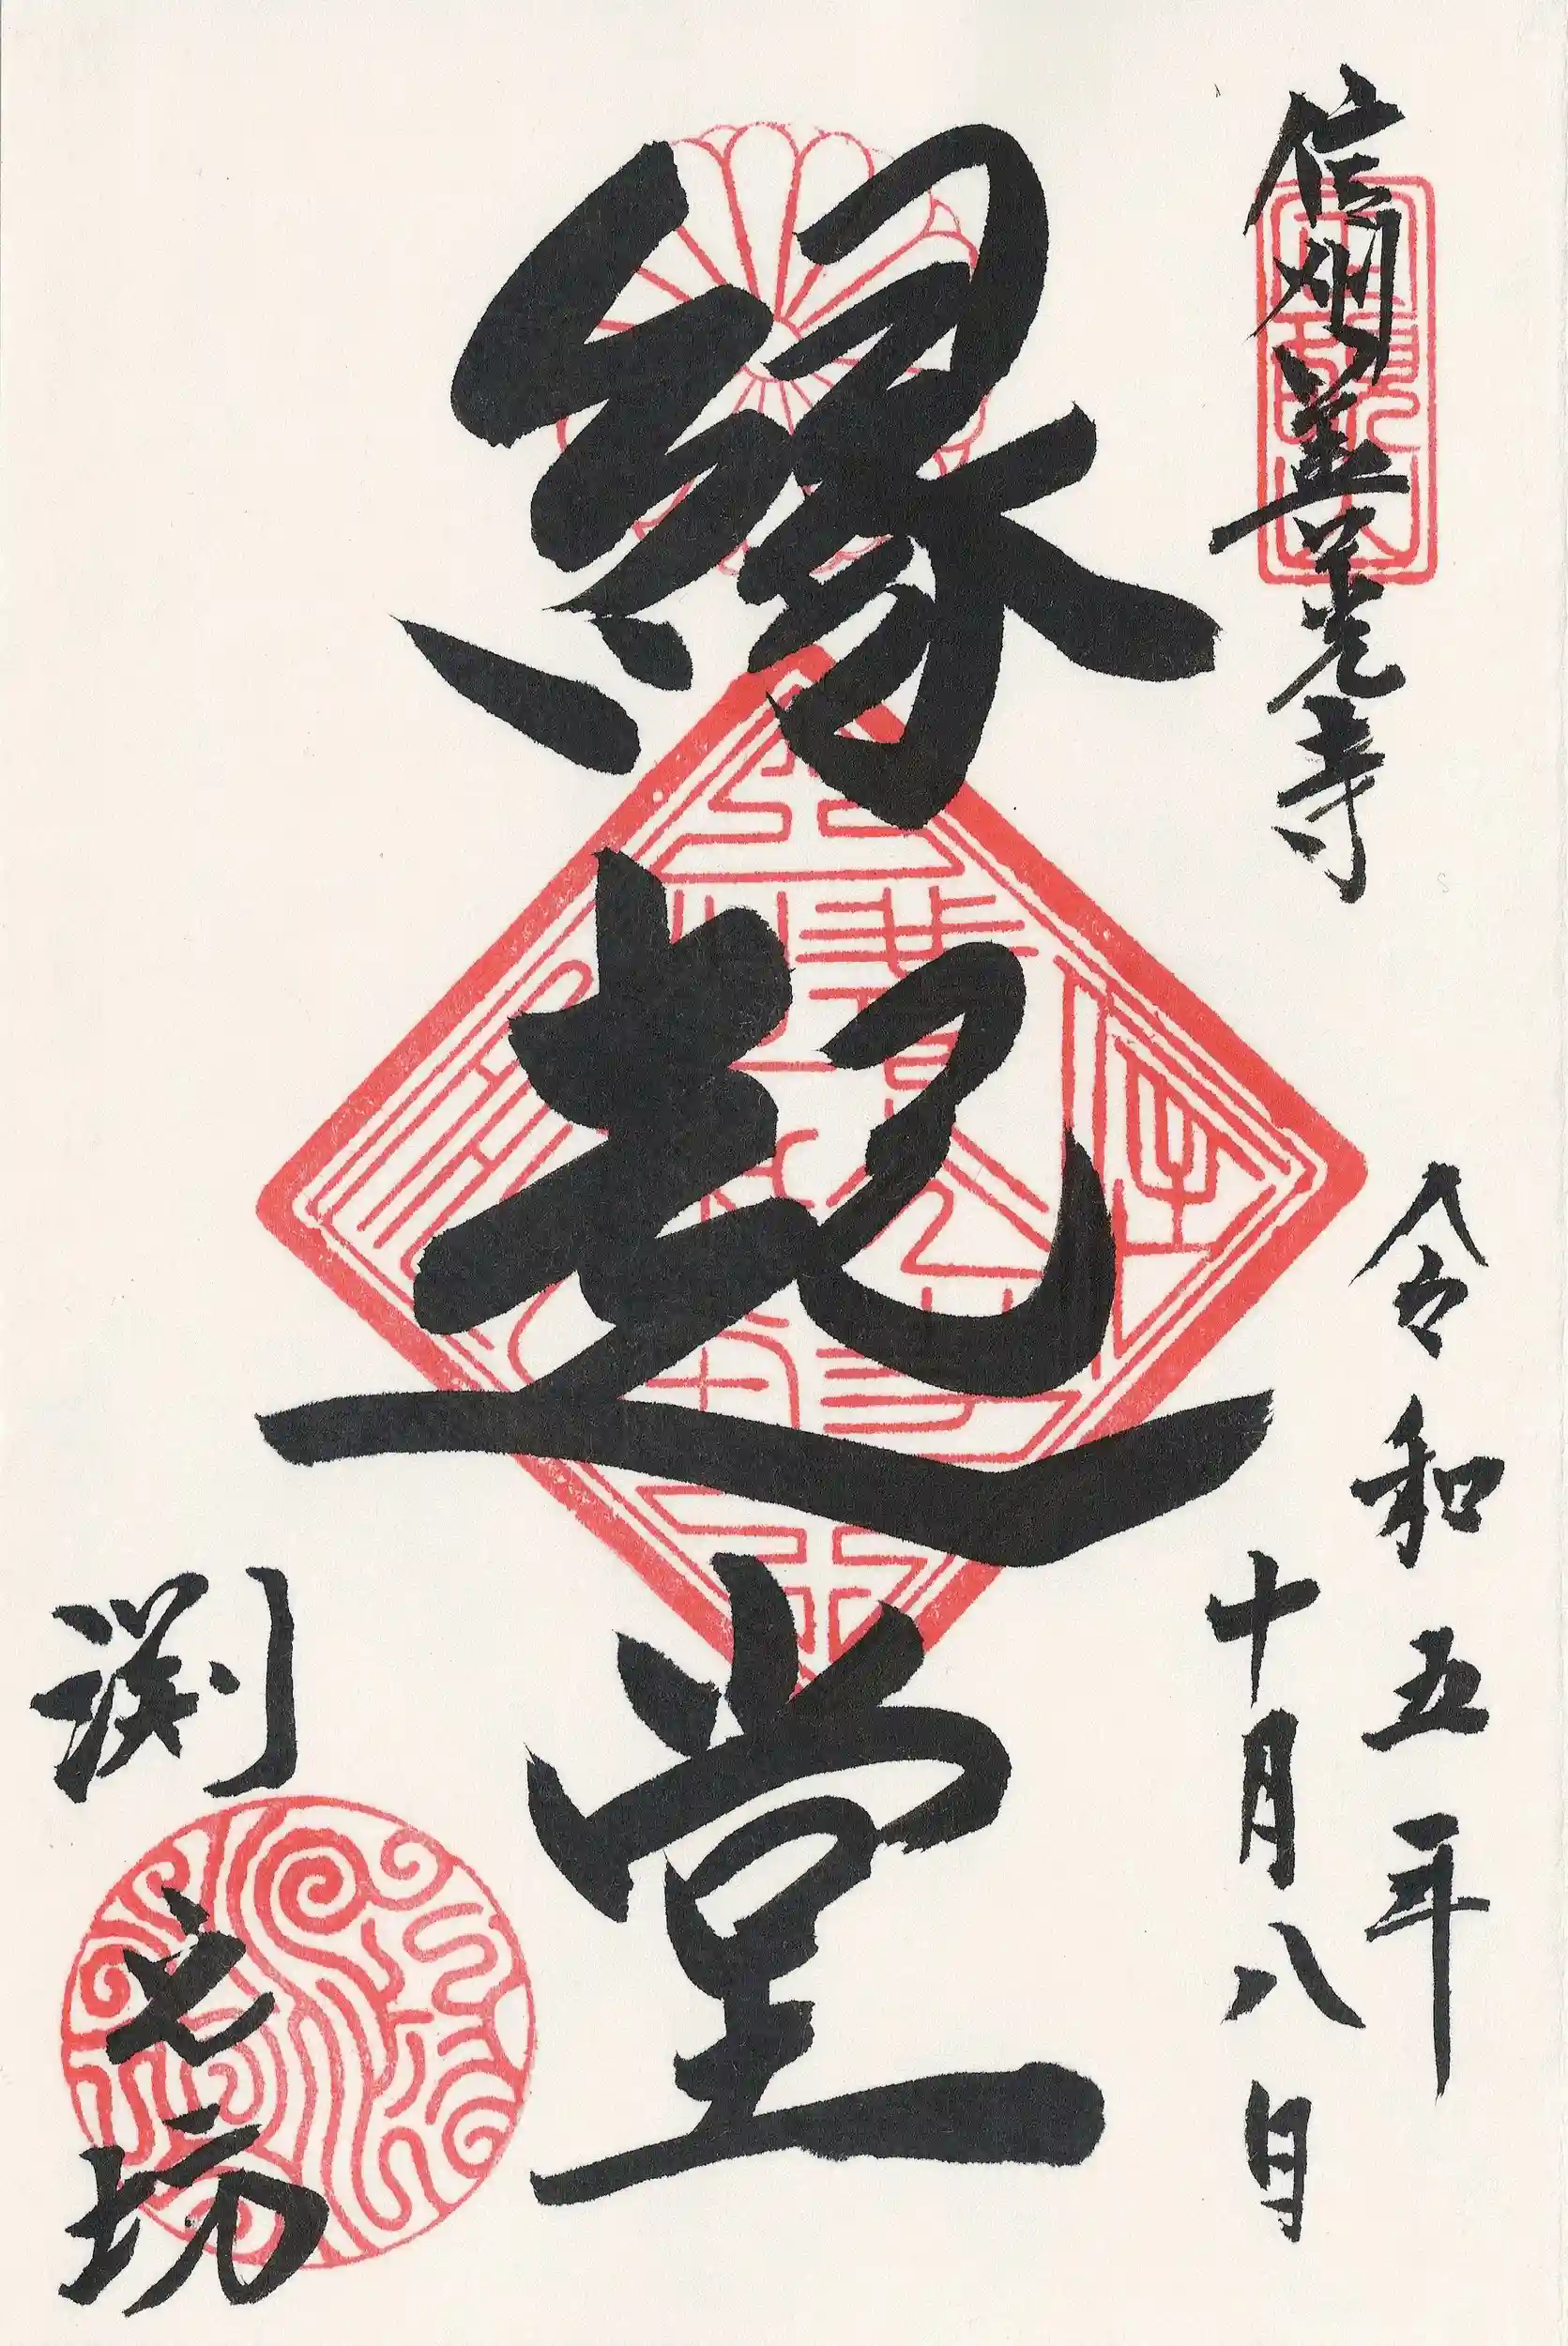 信州善光寺
令和五年
十月八日
縁起堂
淵之坊